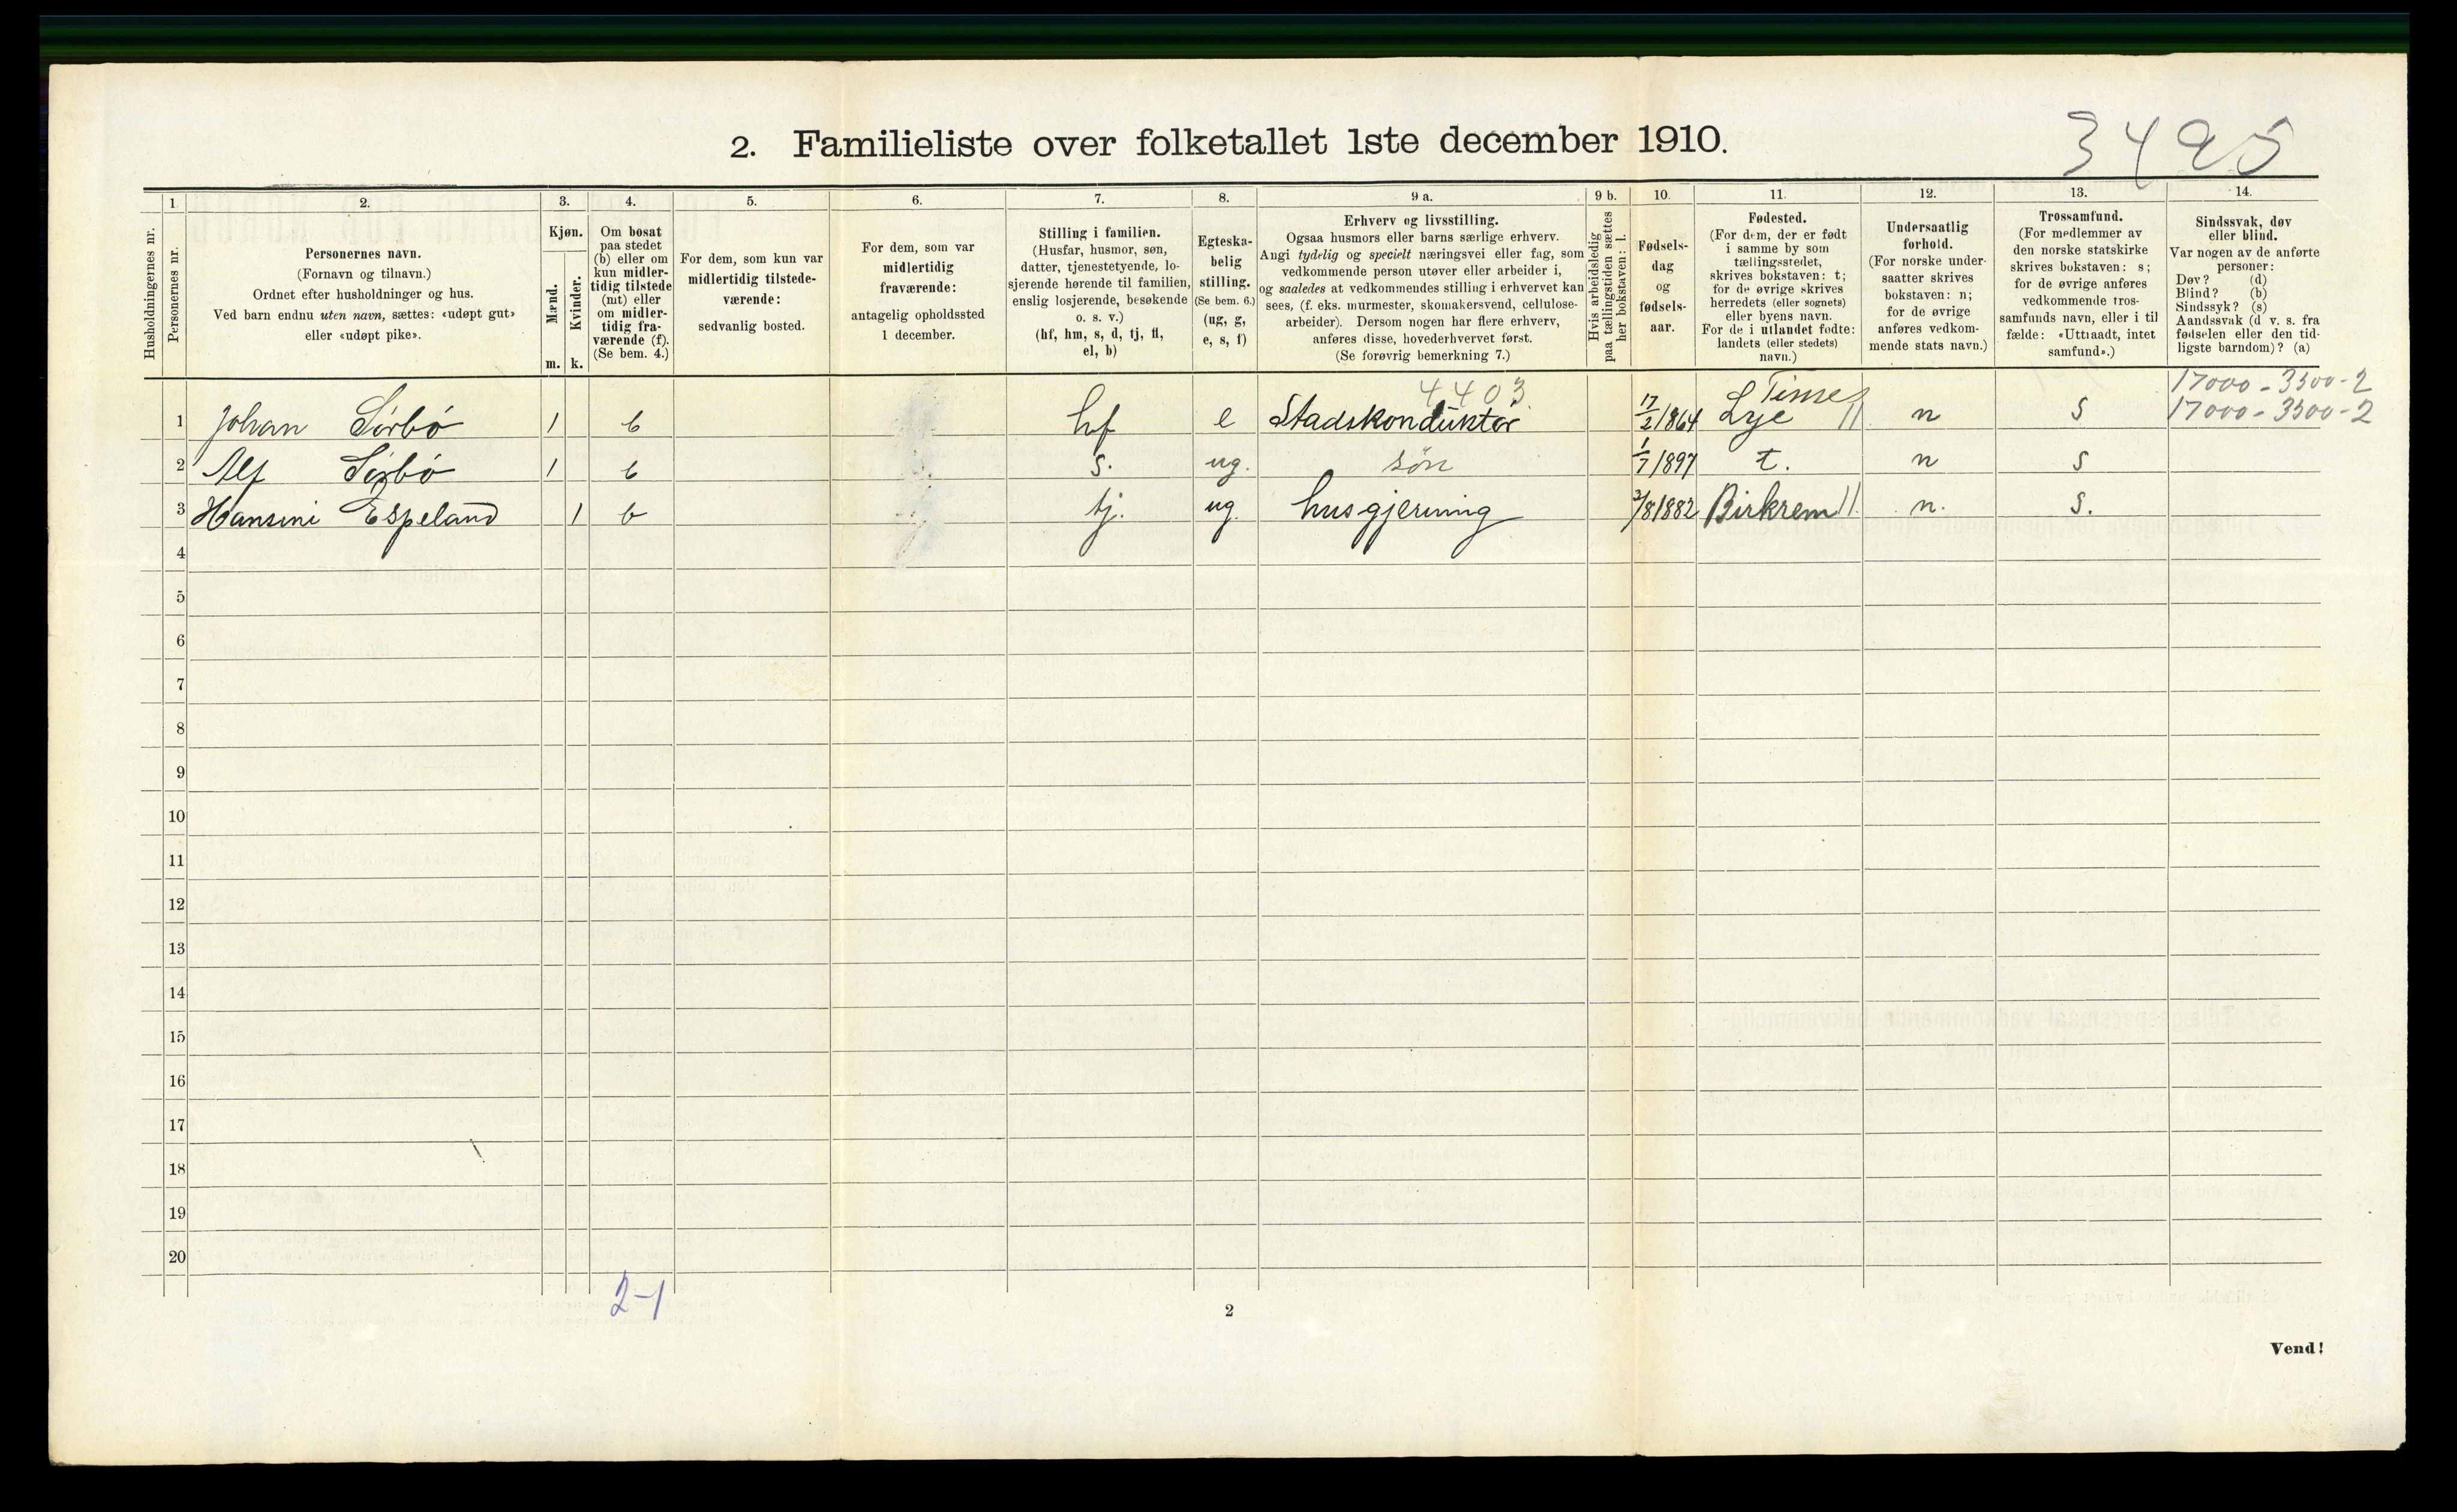 3495
2. Familieliste over folketallet 1ste december 1910.
1 2. 3. 4. 5. 6. 7. 8. 9 a. 9 b. 10. 11. 12. 13. 14.
Husholdningernes nr.
Personernes nr.
Personernes navn.
(Fornavn og tilnavn.)
Ordnet efter husholdninger og hus.
Ved barn endnu uten navn, sættes: «udøpt gut»
eller «udøpt pike».
Kjøn.
Mænd.
Kvinder.
m. k.
Om bosat
paa stedet
(b) eller om
kun midler-
tidig tilstede
(mt) eller
om midler-
tidig fra-
værende (f).
(Se bem. 4.)
For dem, som kun var
midlertidig tilstede-
værende:
sedvanlig bosted.
For dem, som var
midlertidig
fraværende:
antagelig opholdssted
1 december.
Stilling i familien.
(Husfar, husmor, søn,
datter, tjenestetyende, lo-
sjerende hørende til familien,
enslig losjerende, besøkende
o. s. v.)
(hf, hm, s, d, tj, fl,
el, b)
Egteska-
belig
stilling.
(Se bem. 6.)
(ug, g,
e, s, f)
Erhverv og livsstilling.
Ogsaa husmors eller barns særlige erhverv.
Angi tydelig og specielt næringsvei eller fag, som
vedkommende person utøver eller arbeider i,
og saaledes at vedkommendes stilling i erhvervet kan
sees, (f. eks. murmester, skomakersvend, cellulose-
arbeider). Dersom nogen har flere erhverv,
anføres disse, hovederhvervet først.
(Se forøvrig bemerkning 7.)
Hvis arbeidsledig
paa tællingstiden sættes
her bokstaven: l.
Fødsels-
dag
og
fødsels-
aar.
Fødested.
(For dem, der er født
i samme by som
tællingsstedet,
skrives bokstaven: t;
for de øvrige skrives
herredets (eller sognets)
eller byens navn.
For de i utlandet fødte:
landets (eller stedets)
navn.)
Undersaatlig
forhold.
(For norske under-
saatter skrives
bokstaven: n;
for de øvrige
anføres vedkom-
mende stats navn.)
Trossamfund.
(For medlemmer av
den norske statskirke
skrives bokstaven: s;
for de øvrige anføres
vedkommende tros-
samfunds navn, eller i til
fælde: «Uttraadt, intet
samfund».)
Sindssvak, døv
eller blind.
Var nogen av de anførte
personer:
Døv? (d)
Blind? (b)
Sindssyk? (s)
Aandssvak (d v. s. fra
fødselen eller den tid-
ligste barndom)? (a)
4403 Time 17000 - 3500 - 2
1 Johan Sörbö 1 b hf e Stadskonduktør 17/2 1864 Lye || n s 17000 - 3500 - 2
2 Alf Sörbö 1 b s. ug. søn 1/7 1897 t. n s
3 Hansini Espeland 1 b tj. ug. husgjerning 2/8 1882 Birkrem || n. s.
4
5
6
7
8
9
10
11
12
13
14
15
16
17
18
19
20
2-1
2
Vend!